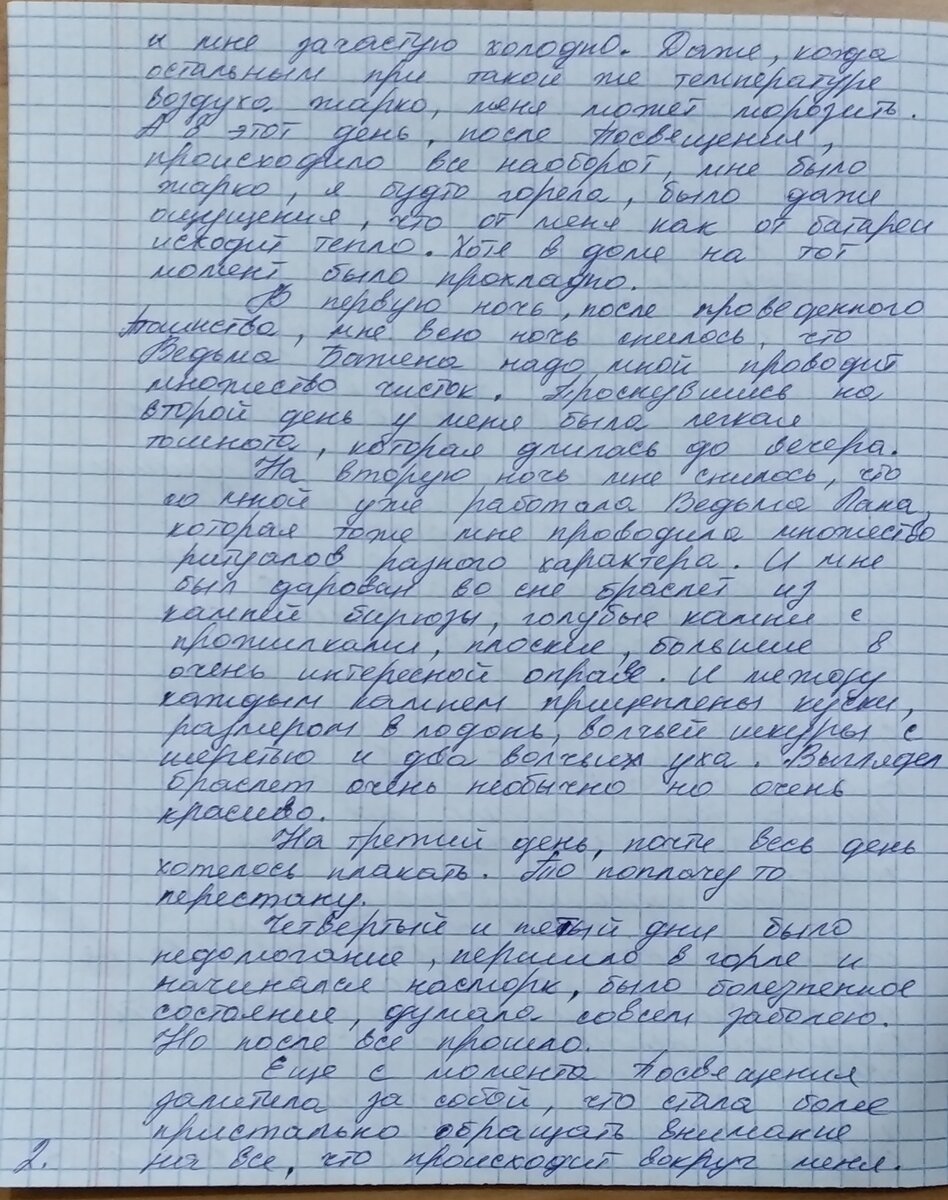 и мне зачастую холодно. Даже, когда
остальным при такой же температуре
воздуха жарко, меня может морозить.
А в этот день, после Посвящения,
происходило все наоборот, мне было
жарко, я будто горела, было даже
ощущения, что от меня как от батареи
исходит тепло. Хотя в доме на тот
момент было прохладно.
В первую ночь, после проведенного
Таинства, мне всю ночь снилось, что
Ведьма Бажена надо мной проводит
множество чисток. Проснувшись на
второй день у меня была легкая
тошнота, которая длилась до вечера.
На вторую ночь мне снилось, что
со мной уже работала Ведьма Лана,
которая тоже мне проводила множество
ритуалов разного характера. И мне
был дарован во сне браслет из
камней бирюзы, голубые камни с
прожилками, плоские, большие в
очень интересной оправе. И между
каждым камнем прицеплены куски,
размером в лодонь, волчьей шкуры с
шерстью и два волчьих уха. Выглядел
браслет очень необычно но очень
красиво.
На третий день, почти весь день
хотелось плакать. То поплачу то
перестану.
Четвертый и пятый дни было
недомогание, першило в горле и
начинался насморк, было болезненное
состояние, думала совсем заболею.
Но после все прошло.
Еще с момента Посвящения
заметила за собой, что стала более
пристально обращать внимание
2. на все, что происходит вокруг меня.